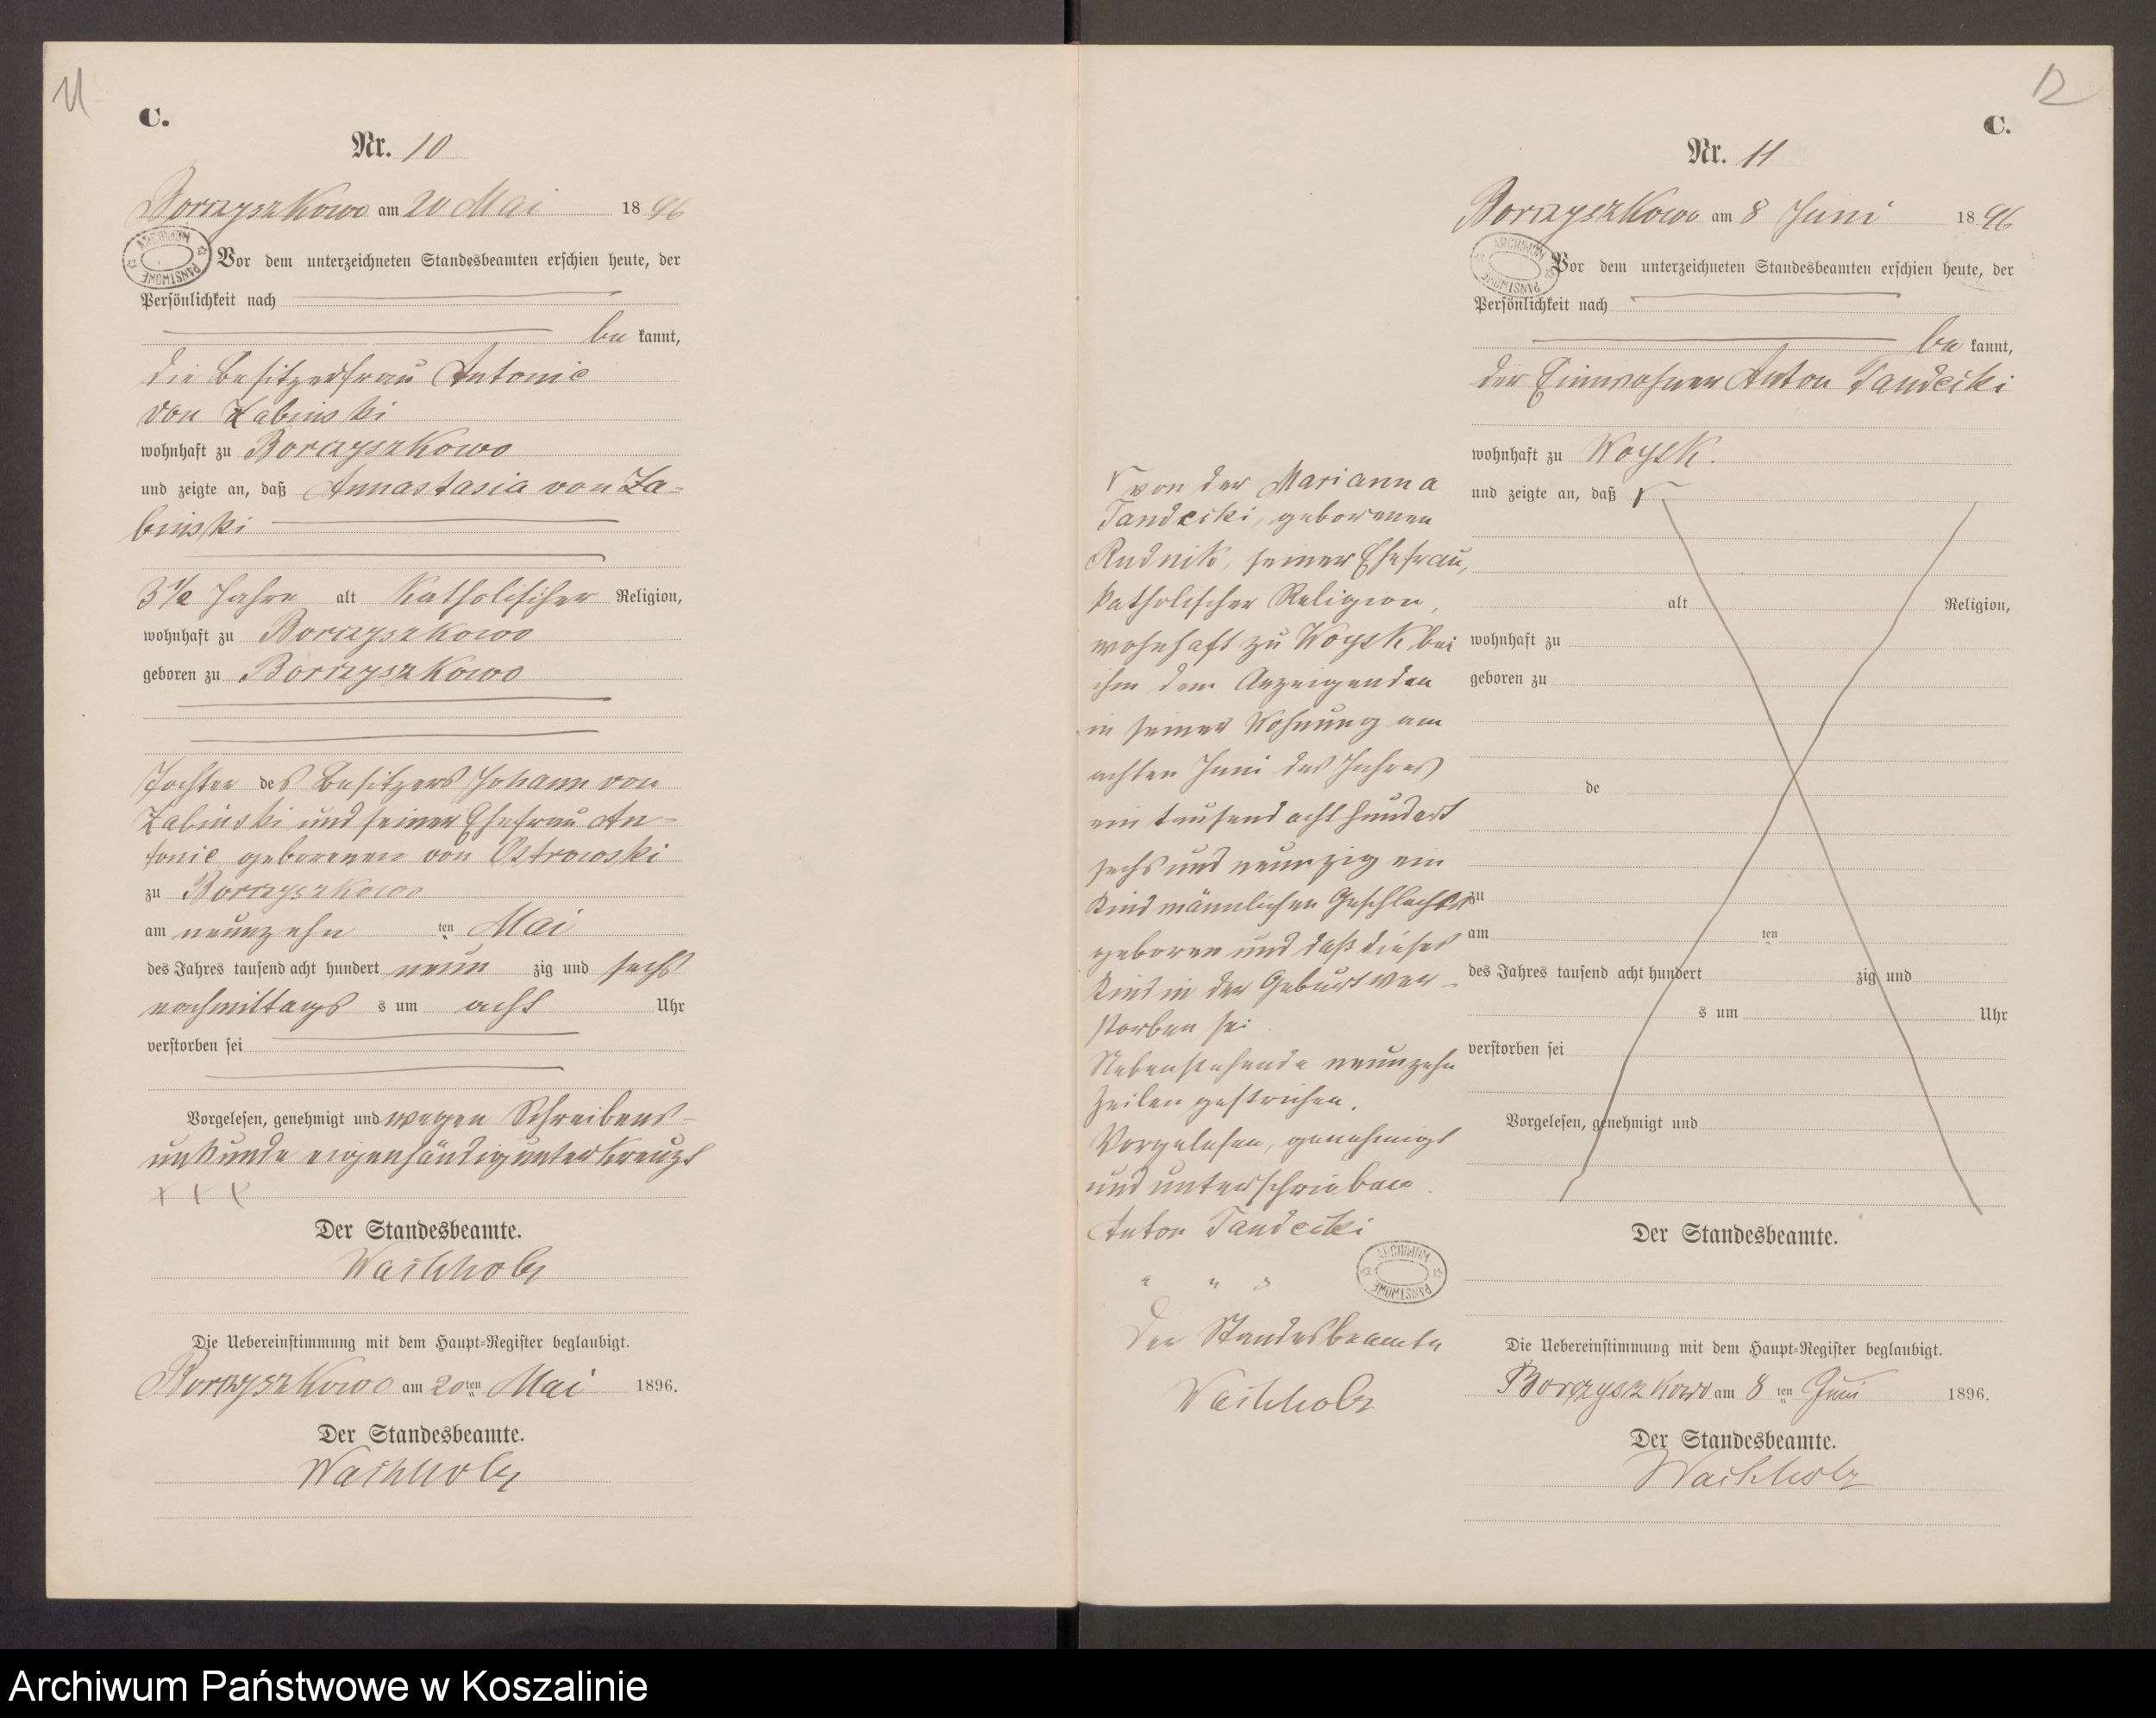 11
C.
Nr. 10
Borzyszkowo am 20 Mai 1896
ARCHIWUM PAŃSTWOWE
Vor dem unterzeichneten Standesbeamten erschien heute, der
Persönlichkeit nach
be kannt,
die Besitzerfrau Antonie
von Zabinski
wohnhaft zu Borzyszkowo
und zeigte an, daß Annastasia von Za=
binski
3 1/2 Jahre alt Katholischer Religion,
wohnhaft zu Borzyszkowo
geboren zu Borzyszkowo
Tochter des Besitzers Johann von
Zabinski und seiner Ehefrau An-
tonie geborenen von Ostrowski
zu Borzyszkowo
am neunzehn ten Mai
des Jahres tausend acht hundert neun zig und sechs
nachmittags s um acht Uhr
verstorben sei
Vorgelesen, genehmigt und wegen Schreibens-
unkunde eigenhändig unterkreuzt
+ + +
Der Standesbeamte.
Wachholz
Die Uebereinstimmung mit dem Haupt=Register beglaubigt.
Borzyszkowo am 20ten Mai 1896.
Der Standesbeamte.
Wachholz
12
C.
Nr. 11
Borzyszkowo am 8 Juni 1896
ARCHIWUM PAŃSTWOWE
Vor dem unterzeichneten Standesbeamten erschien heute, der
Persönlichkeit nach
be kannt,
der Einwohner Anton Tandecki
wohnhaft zu Woysk.
und zeigte an, daß
alt Religion,
wohnhaft zu
geboren zu
de
zu
am ten
des Jahres tausend acht hundert zig und
s um Uhr
verstorben sei
Vorgelesen, genehmigt und
von der Marianna
Tandecki, geborenen
Rudnik, seiner Ehefrau,
katholischer Religion,
wohnhaft zu Woysk, bei
ihm dem Anzeigenden
in seiner Wohnung am
achten Juni des Jahres
ein tausend acht hundert
sechs und neunzig ein
Kind männlichen Geschlechts
geboren und daß dieses
Kind in der Geburt ver-
storben sei.
Nebenstehende neunzehn
Zeilen gestrichen.
Vorgelesen, genehmigt
und unterschrieben.
Anton Tandecki
ARCHIWUM PAŃSTWOWE
Der Standesbeamte
Wachholz
Der Standesbeamte.
Die Uebereinstimmung mit dem Haupt=Register beglaubigt.
Borzyszkowo am 8 ten Juni 1896.
Der Standesbeamte.
Wachholz
Archiwum Państwowe w Koszalinie